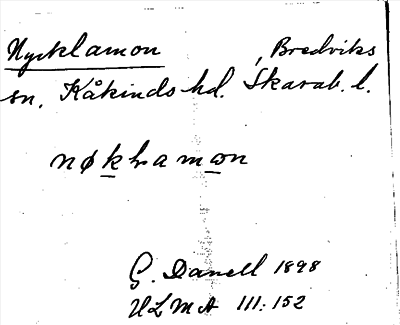 Nycklamon , Bredviks
sn. Kåkinds hd. Skarab. l.
nøklramωn
G. Danell 1898
ULMA 111:152